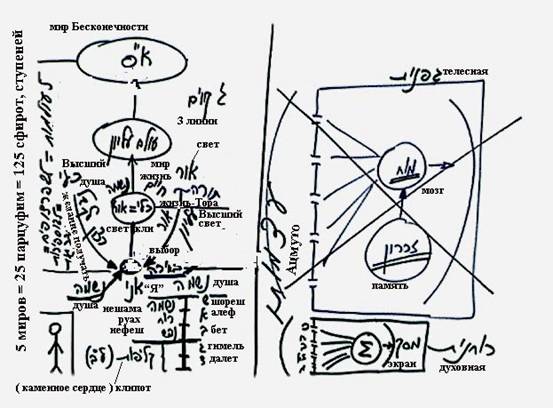 мир Бесконечности
א"ס
5 миров = 25 парцуфим = 125 сфирот, ступеней
3 линии
свет
Высший
мир
душа
жизнь
אור
נשמה
חיים
желание получать
жизнь-Тора
כלי=אור
Высший
свет кли
свет
выбор
אני "Я"
נשמה
душа
נשמה
душа
нешама
נשמה
шореш
руах
רוח
алеф
нефеш
נפש
бет
гимель
далет
קליפות
( каменное сердце ) клипот
телесная
מוח
мозг
זכרון
память
Ацмуто
Σ
מסך
экран
רוחנית
духовная